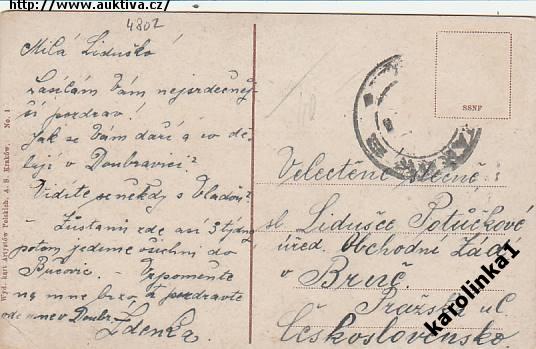 http://www.auktiva.cz/
4802
Milá Liduško
Zasílám Vám nejsrdečněj-
ší pozdrav!
Jak se Vám daří a co dě-
lají v Doubravici?
Vidíte se někdy s Vladou?
- Zůstanu zde asi 3 týdny
potom jedeme všichni do
Bučovic. - Vzpomeňte
na mne brzo, a pozdravte
ode mne v Doubr.
Zdenka.
Wyd. kart Artystów Polskich, A. S. Kraków. No. 1
SSNP
Velectěné slečně:
sl. Lidušce Potůčkové
úřed. Obchodní
v Brně.
Pražská ul.
Československo.
karolinka1